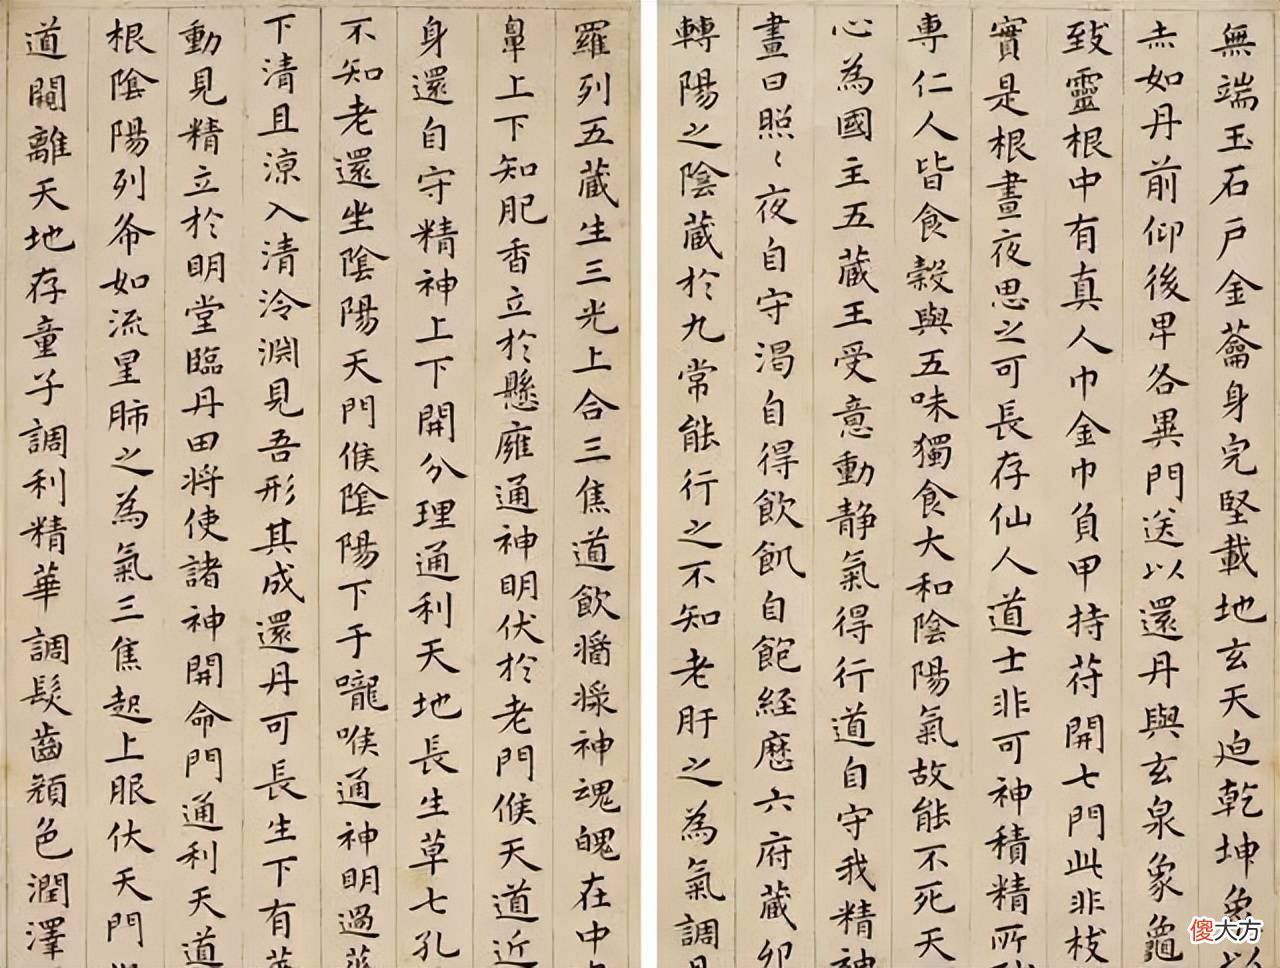 無端玉石戶金籥身完堅載地玄天迫乾坤象以
赤如丹前仰後卑各異門送以還丹與玄泉象龜
致靈根中有真人巾金巾負甲持苻開七門此非枝
實是根晝夜思之可長存仙人道士非可神積精所
專仁人皆食穀與五味獨食大和陰陽氣故能不死天
心為國主五藏王受意動静氣得行道自守我精神
晝日照〻夜自守渴自得飲飢自飽経歷六府藏卯
轉陽之陰藏於九常能行之不知老肝之為氣調
羅列五藏生三光上合三焦道飲醬漿神魂魄在中
鼻上下知肥香立於懸癰通神明伏於老門候天道近
身還自守精神上下開分理通利天地長生草七孔
不知老還坐陰陽天門候陰陽下于嚨喉通神明過華
下清且涼入清泠淵見吾形其成還丹可長生下有華
動見精立於明堂臨丹田将使諸神開命門通利天道
根陰陽列布如流星肺之為氣三焦起上眼伏天門
道闚離天地存童子調利精華調髮齒顏色潤澤
傻大方